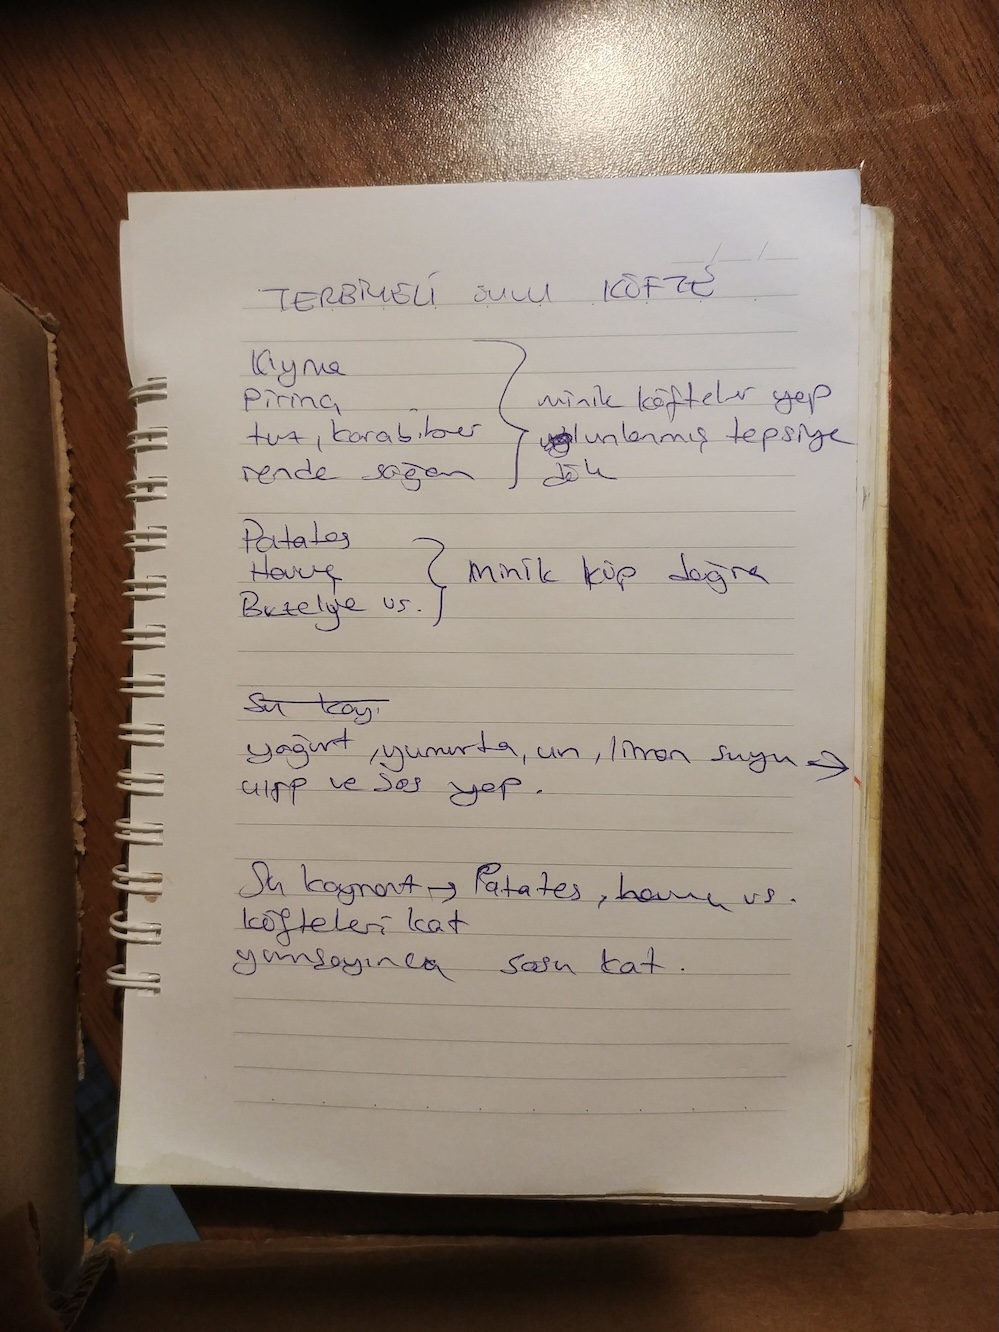 TERBİYELİ SULU KÖFTE
Kıyma
Pirinç
tuz, karabiber
rende soğan
minik köfteler yap
unlanmış tepsiye
dök
Patates
Havuç
Bezelye vs.
minik küp doğra
Su kay
yoğurt, yumurta, un, limon suyu →
çırp ve sos yap.
Su kaynat → Patates, havuç vs.
köfteleri kat
yumuşayınca sosu kat.